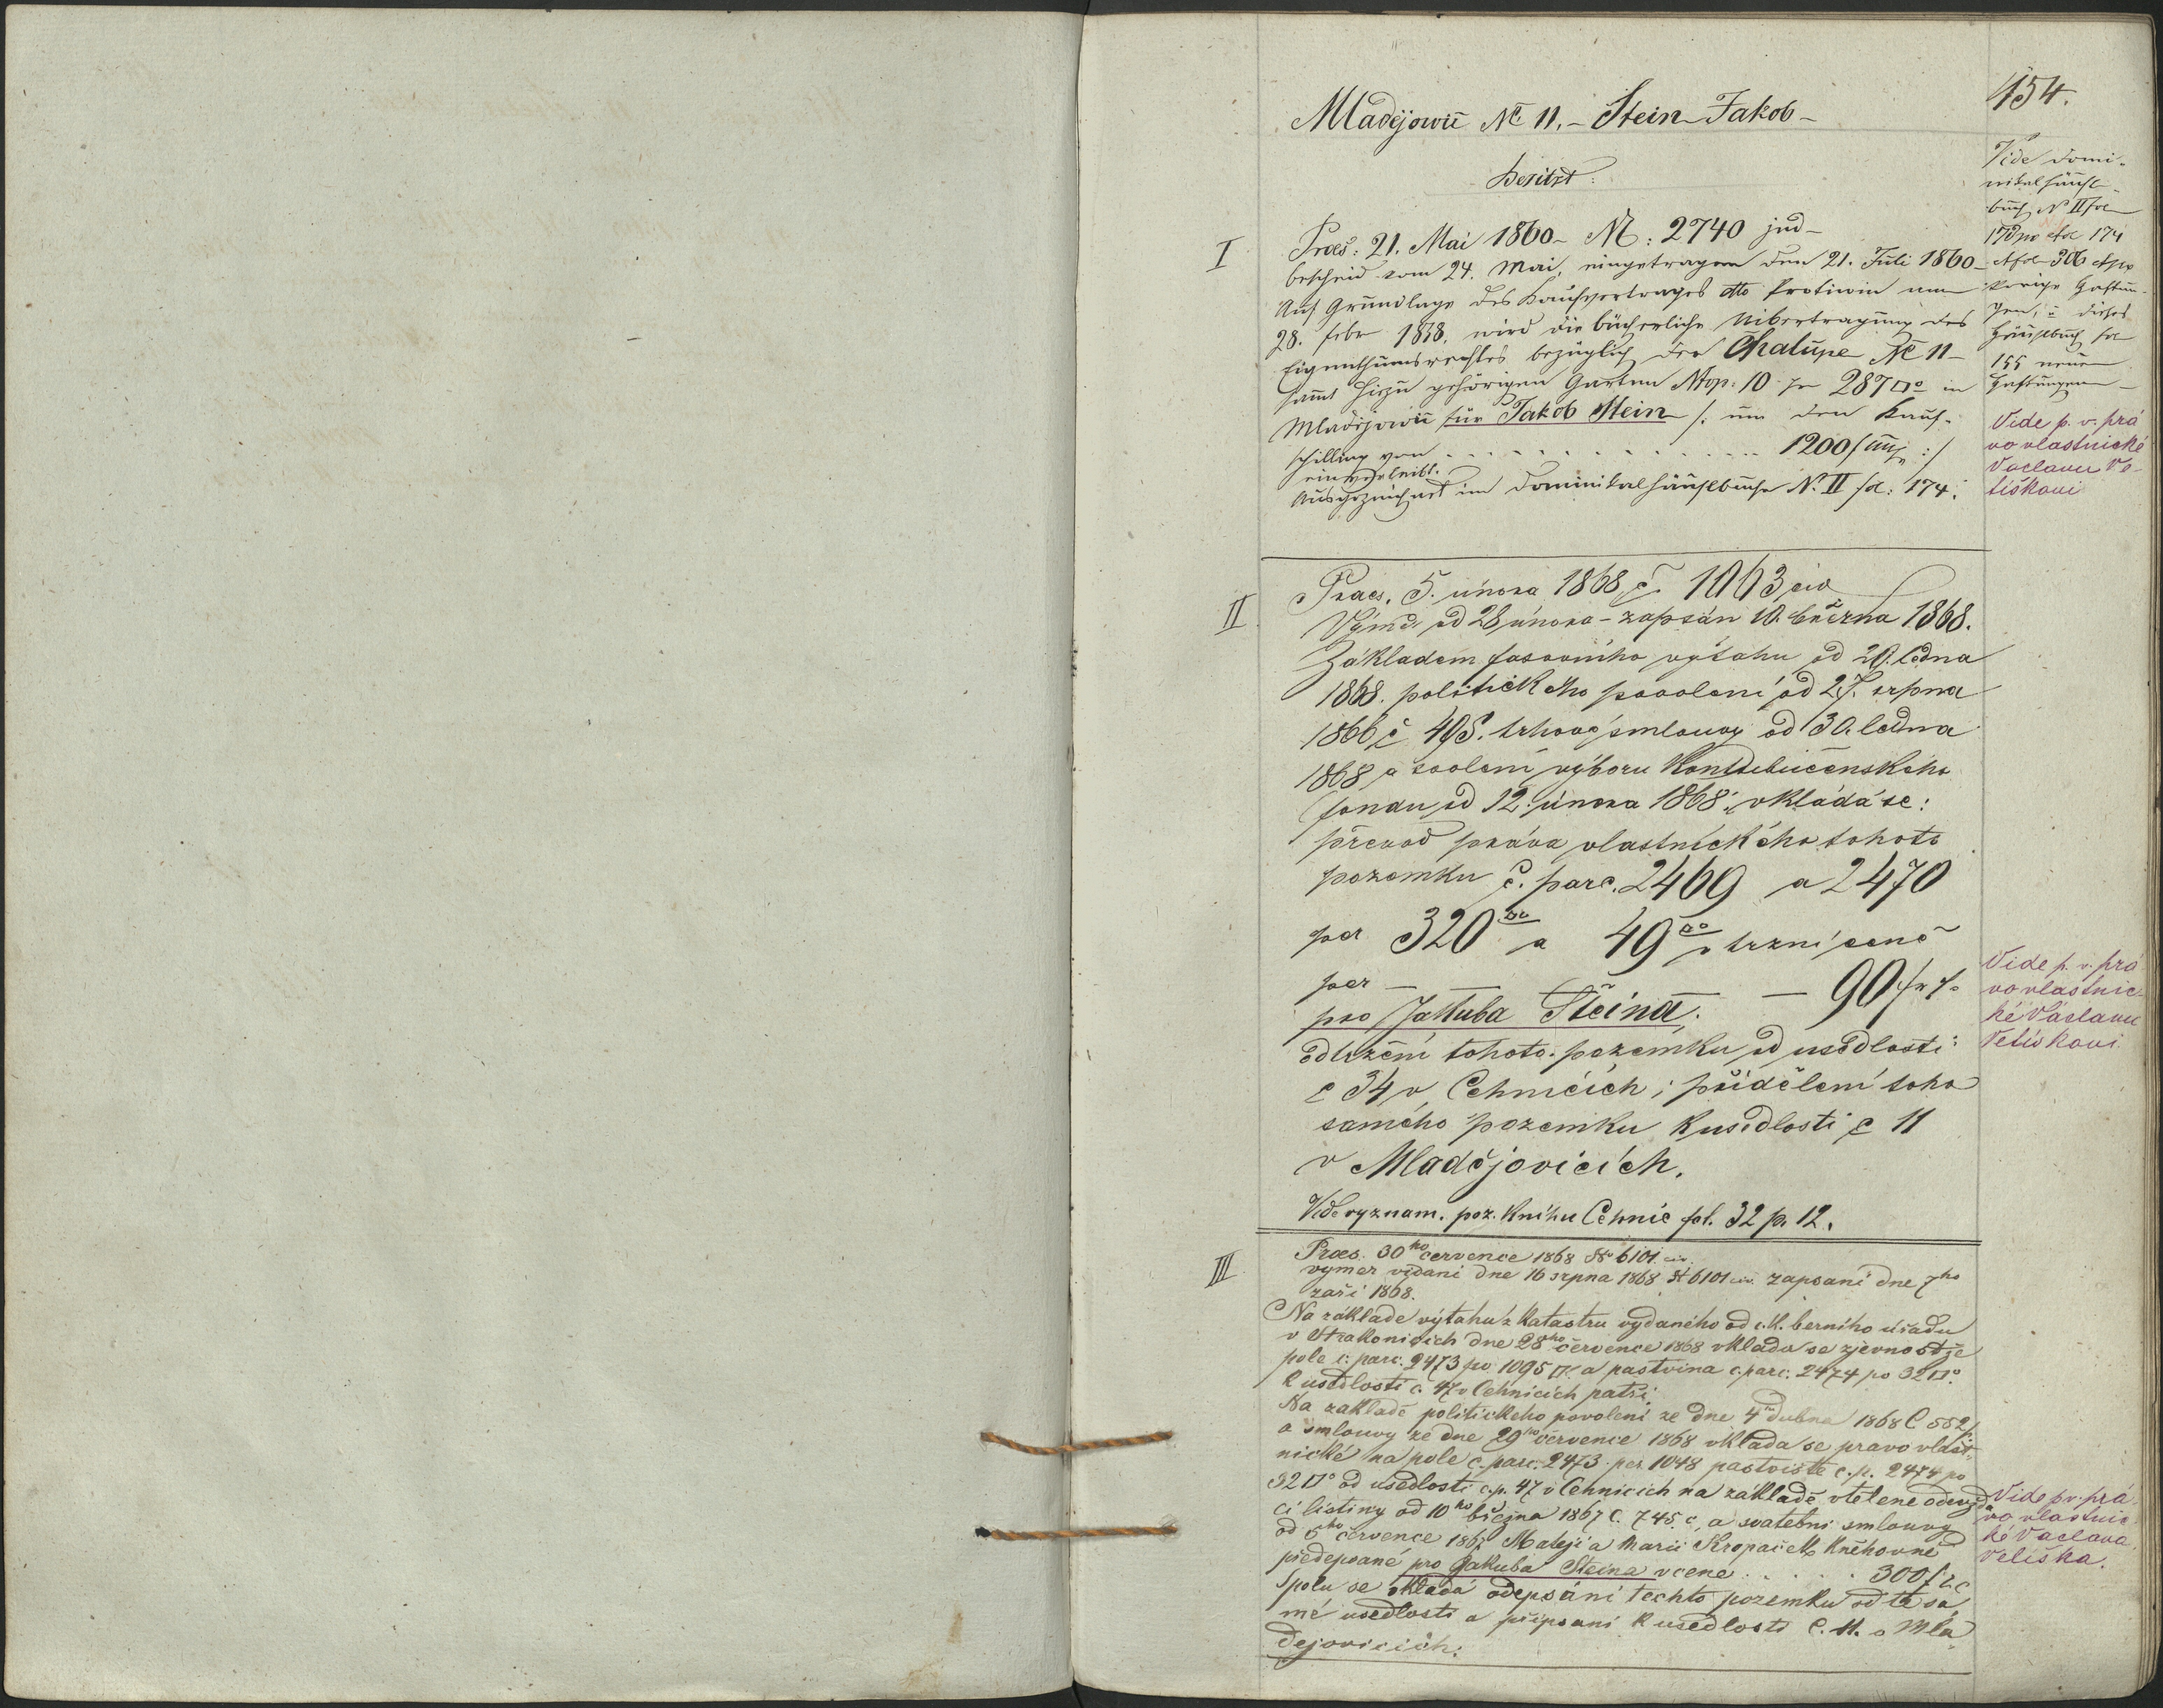 454.
Mladějowic № 11. – Stein Jakob –
besitzt:
Vide Domi-
nikalhäusl-
buch N° II fol
173 po et fol 174
et fol 306 et po
vorige Haftun-
gen, u dieses
Häuslbuch fol
155 neuen
Haftungen –
I
Praes: 21. Mai 1860 – №: 2740 jud –
Bescheid vom 24. Mai, eingetragen den 21. Juli 1860 –
Auf Grundlage des Kaufvertrages dto Protiwin am
28. febr 1838. wird die bücherliche Uibertragung des
Eigenthumsrechtes bezüglich der Chalupe № 11 –
sammt hiezu gehörigen Garten Ntop: 10 per 287 □° in
Mladějowic für Jakob Stein /: um den Kauf-
schilling von 1200 f :/
einverleibt.
Ausgezeichnet im Dominikalhäuslbuche N° II fol: 174.
Vide p. v. prá
vo vlastnické
Vaclavu Ve-
tiškovi
II
Praes. 5. února 1868 č. 1063 civ
Výměr od 28 února – zapsán 10. března 1868.
Základem fasovního výtahu od 29. ledna
1868. politického povolení od 27. srpna
1866 č 495. trhové smlouvy od 30. ledna
1868 a svolení výboru Kontribučenského
fondu od 12. února 1868 vkládá se:
převod práva vlastnického tohoto
pozemku č. parc. 2469 a 2470
per 320 □° a 49 □° v tržní ceně
per – – – – 90 f
pro Jakuba Šteina;
odtržení tohoto pozemku od usedlosti
č 34 v Cehnicích; přidělení toho
samého pozemku k usedlosti č 11
v Mladějovicích.
Vide význam. poz. knihu Cehnic fol. 32 p. 12.
Vide p. v. prá
vo vlastnic-
ké Václavu
Vetiškovi
III
Praes. 30ho července 1868 № 6101 civ.
vyměr vydaní dne 16 srpna 1868 № 6101 civ. zapsaní dne 7ho
zaří 1868.
Na základe výtahu z Katastru vydaného od c. k. berního úřadu
v Strakonicích dne 28ho července 1868 vklada se zjevnost že
pole č: parc: 2473 po 1095 □° a pastvina č. parc: 2474 po 32 □°
k usedlosti č. 47 v Cehnicích patří.
Na zakladě politickeho povoleni ze dne 4ho dubna 1868 Č 552
a smlouvy ze dne 29ho července 1868 vklada se pravo vlast-
nické na pole č. parc. 2473 per 1048 pastviště č. p. 2474 po
32 □° od usedlosti č. p. 47 v Cehnicich na základě vtělene odevzda
ci listiny od 10ho března 1867 č. 745 c, a svatebni smlouvy
od 5ho července 1867 Matěji a Marii Kropaček Kněhovne
předepsané pro Jakuba Steina v ceně 300 f
Spolu se vkladá odepsáni techto pozemku od té sa
mé usedlosti a přípsani k usedlosti č. 11. v Mla-
dejovicich.
Vide p. v. prá-
vo vlastnic
ké Vaclava
Vetiška.